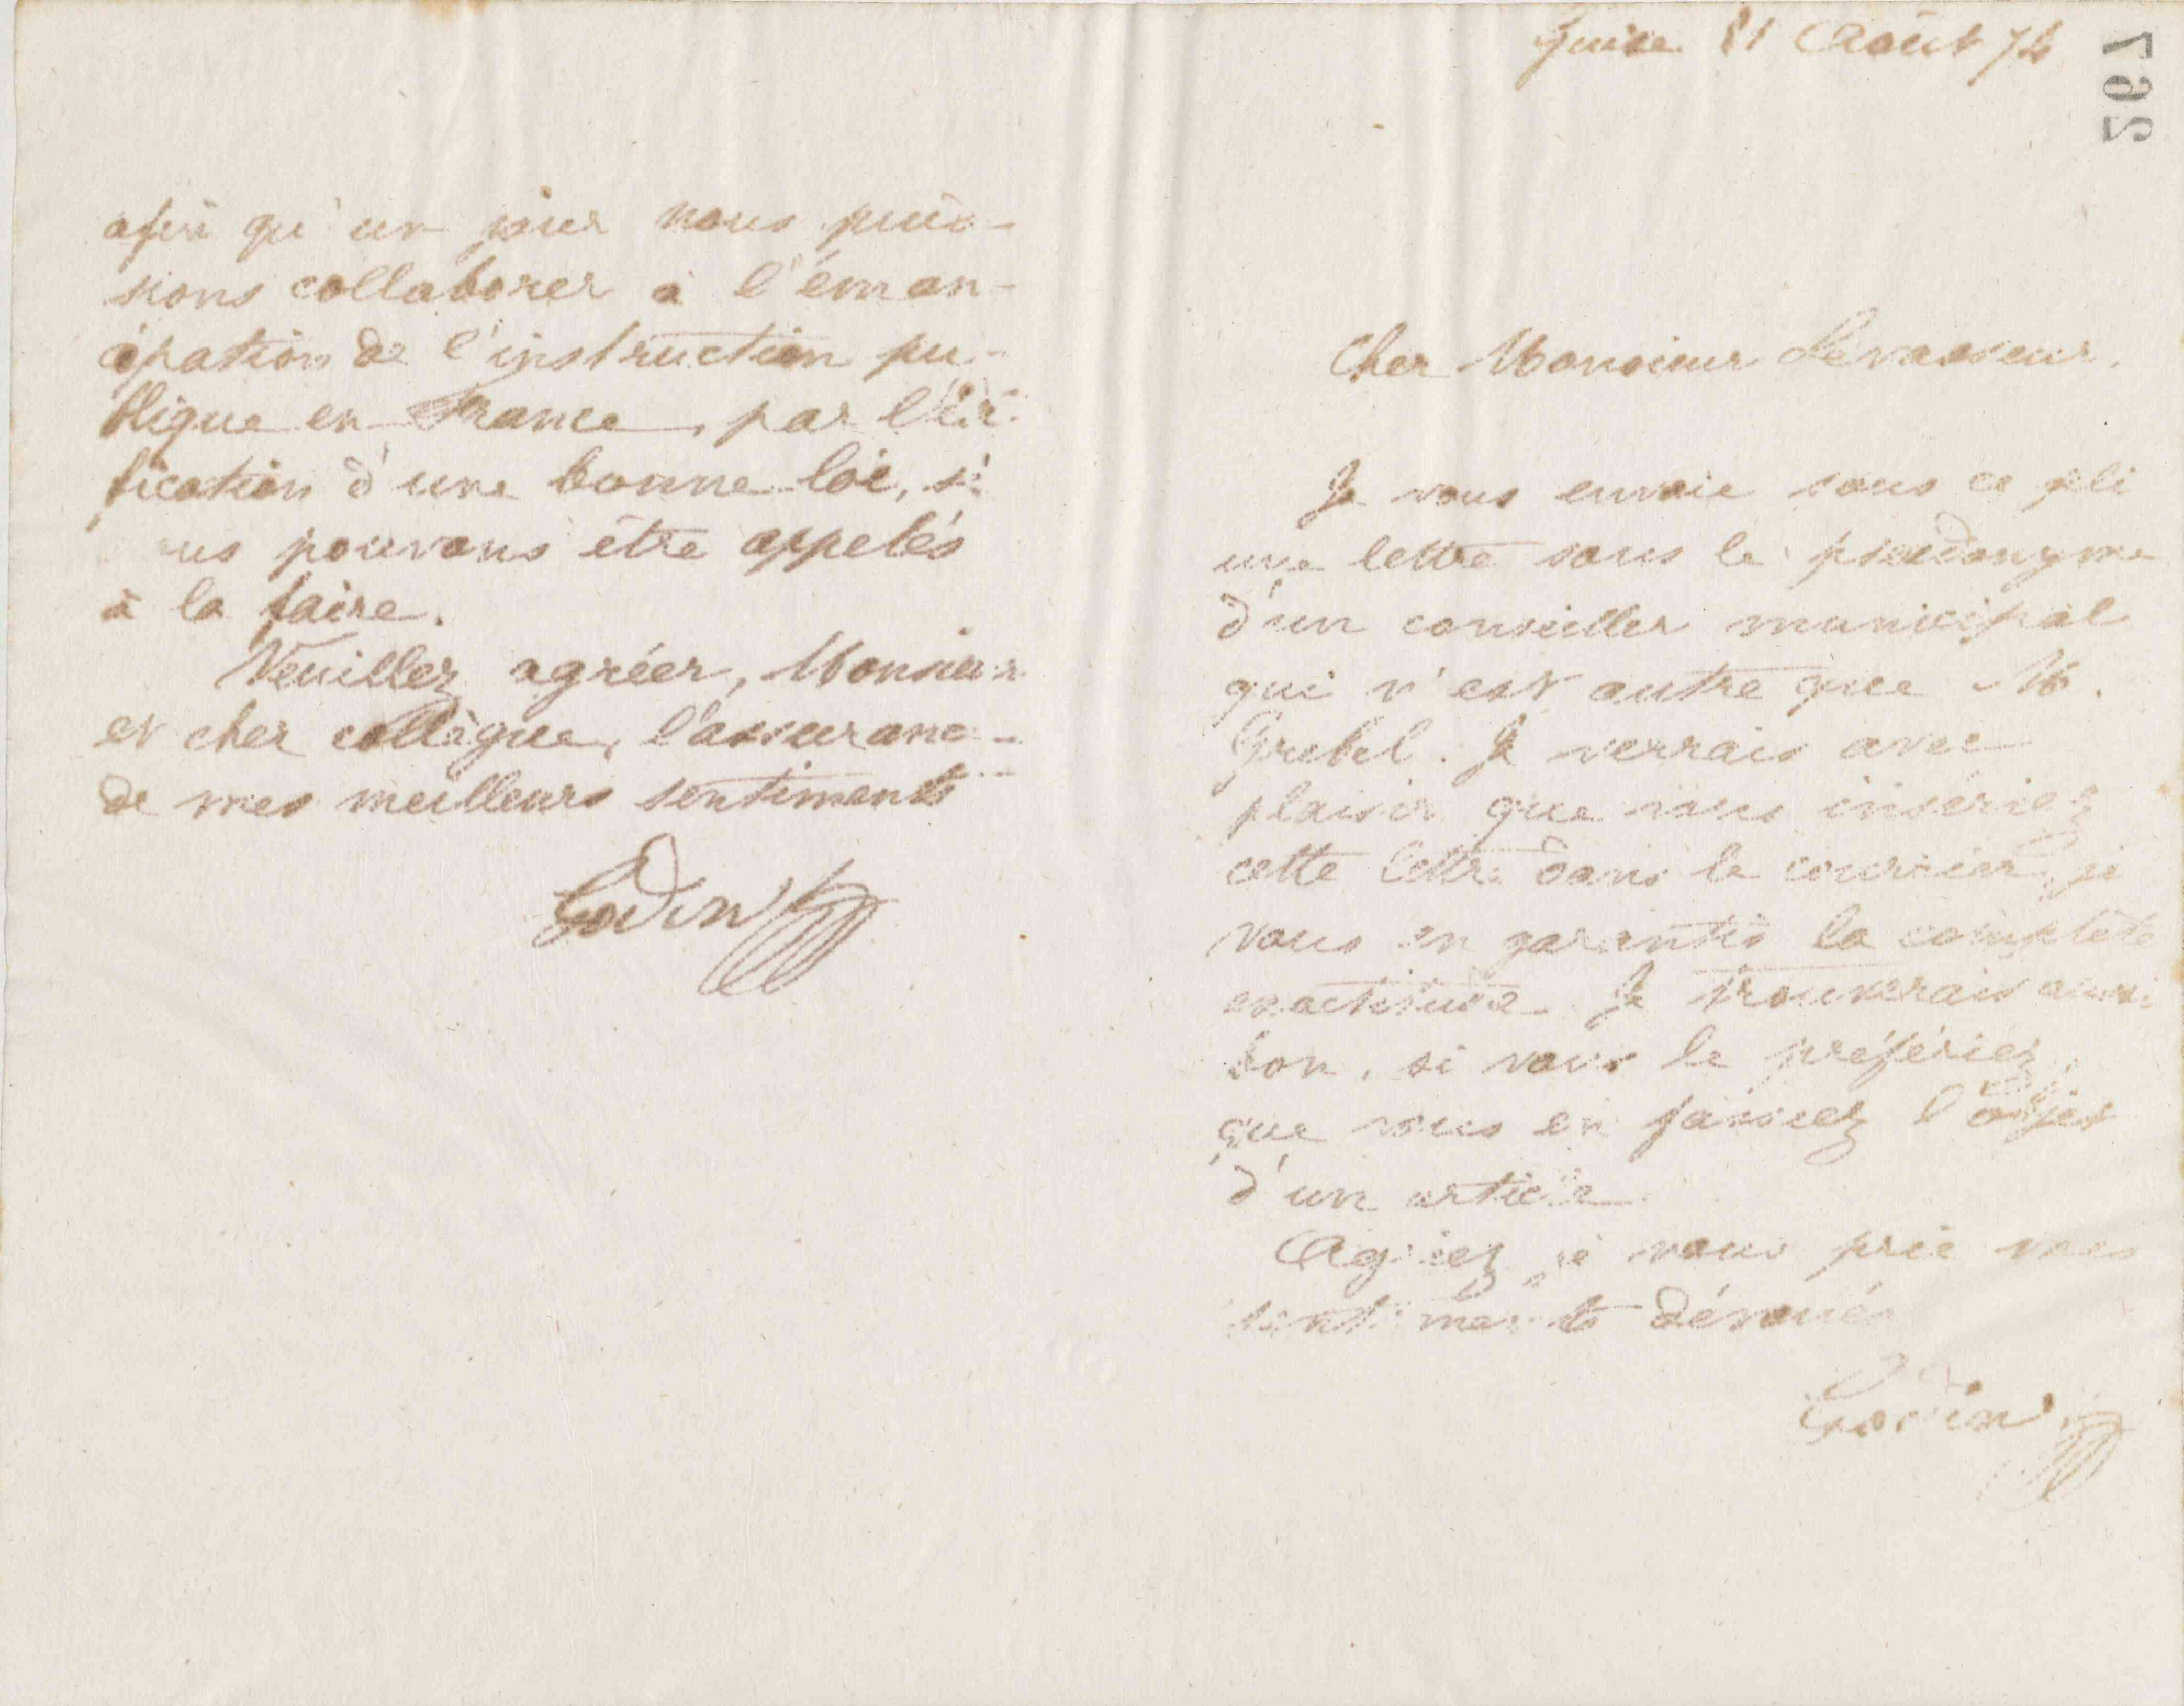 afin qu'un jour nous puis-
sions collaborer à l'éman-
cipation de l'instruction pu-
blique en France, par
fication d'une bonne loi, si
pouvons être appelés
à la faire.
Veuillez agréer, Monsieur
et cher collègue, l'assurance
de mes meilleurs sentiments
Godin
Guise 11 Août 74
267
Cher Monsieur Levasseur.
Je vous envoie sous ce pli
une lettre sous le pseudonyme
d'un conseiller municipal
qui n'est autre que M.
Grebel. Je verrais avec
plaisir que vous insériez
cette lettre dans le courrier, je
vous en garantis la complète
exactitude. Je trouverais aussi
bon, si vous le préfériez,
que vous en fassiez l'objet
d'un article.
Agréez je vous prie mes
sentiments dévoués
Godin